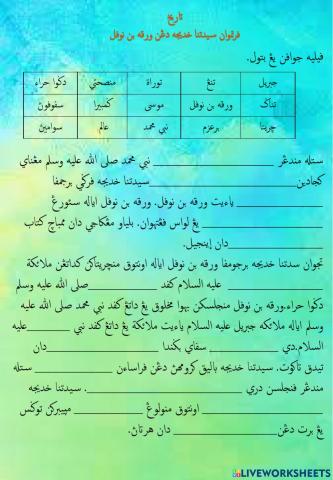 تاريخ
فرتموان سيدتنا خديجه دڠن ورقه بن نوفل
فيليه جوافن يڠ بتول.
جبريل تنڠ توراة منصحتي دكوا حراء
تناݢ ورقه بن نوفل موسى ݢمبيرا سفوفون
چريتا برعزم نبي محمد عالم سوامين
ستله مندڠر ____________ نبي محمد صلى الله عليه وسلم مڠناي
كجادين ____________ سيدتنا خديجه فرݢي برجمفا
____________ ياءيت ورقه بن نوفل. ورقه بن نوفل اياله سئورڠ
____________ يڠ لواس فڠتهوان. بلياو مڠكاجي دان ممباچ كتاب
____________ دان إينجيل.
تجوان سدتنا خديجه برجومفا ورقه بن نوفل اياله اونتوق منچريتاكن كداتڠن ملائكة
____________ عليه السلام كفد ____________ صلى الله عليه وسلم
دكوا حراء.ورقه بن نوفل منجلسكن بهوا مخلوق يڠ داتڠ كفد نبي محمد صلى الله عليه
وسلم اياله ملائكه جبريل عليه السلام ياءيت ملائكة يڠ داتڠ كفد نبي ________ عليه
السلام.دي ________ سفاي بڬيندا ________ دان
تيدق تاكوت. سيدتنا خديجه باليق كرومهڽ دڠن فراساءن ________ ستله
مندڠر فنجلسن دري ____________. سيدتنا خديجه
____________ اونتوق منولوڠ ____________ ميبيركن توݢس
يڠ برت دڠن ____________ دان هرتاڽ.
LIVEWORKSHEETS